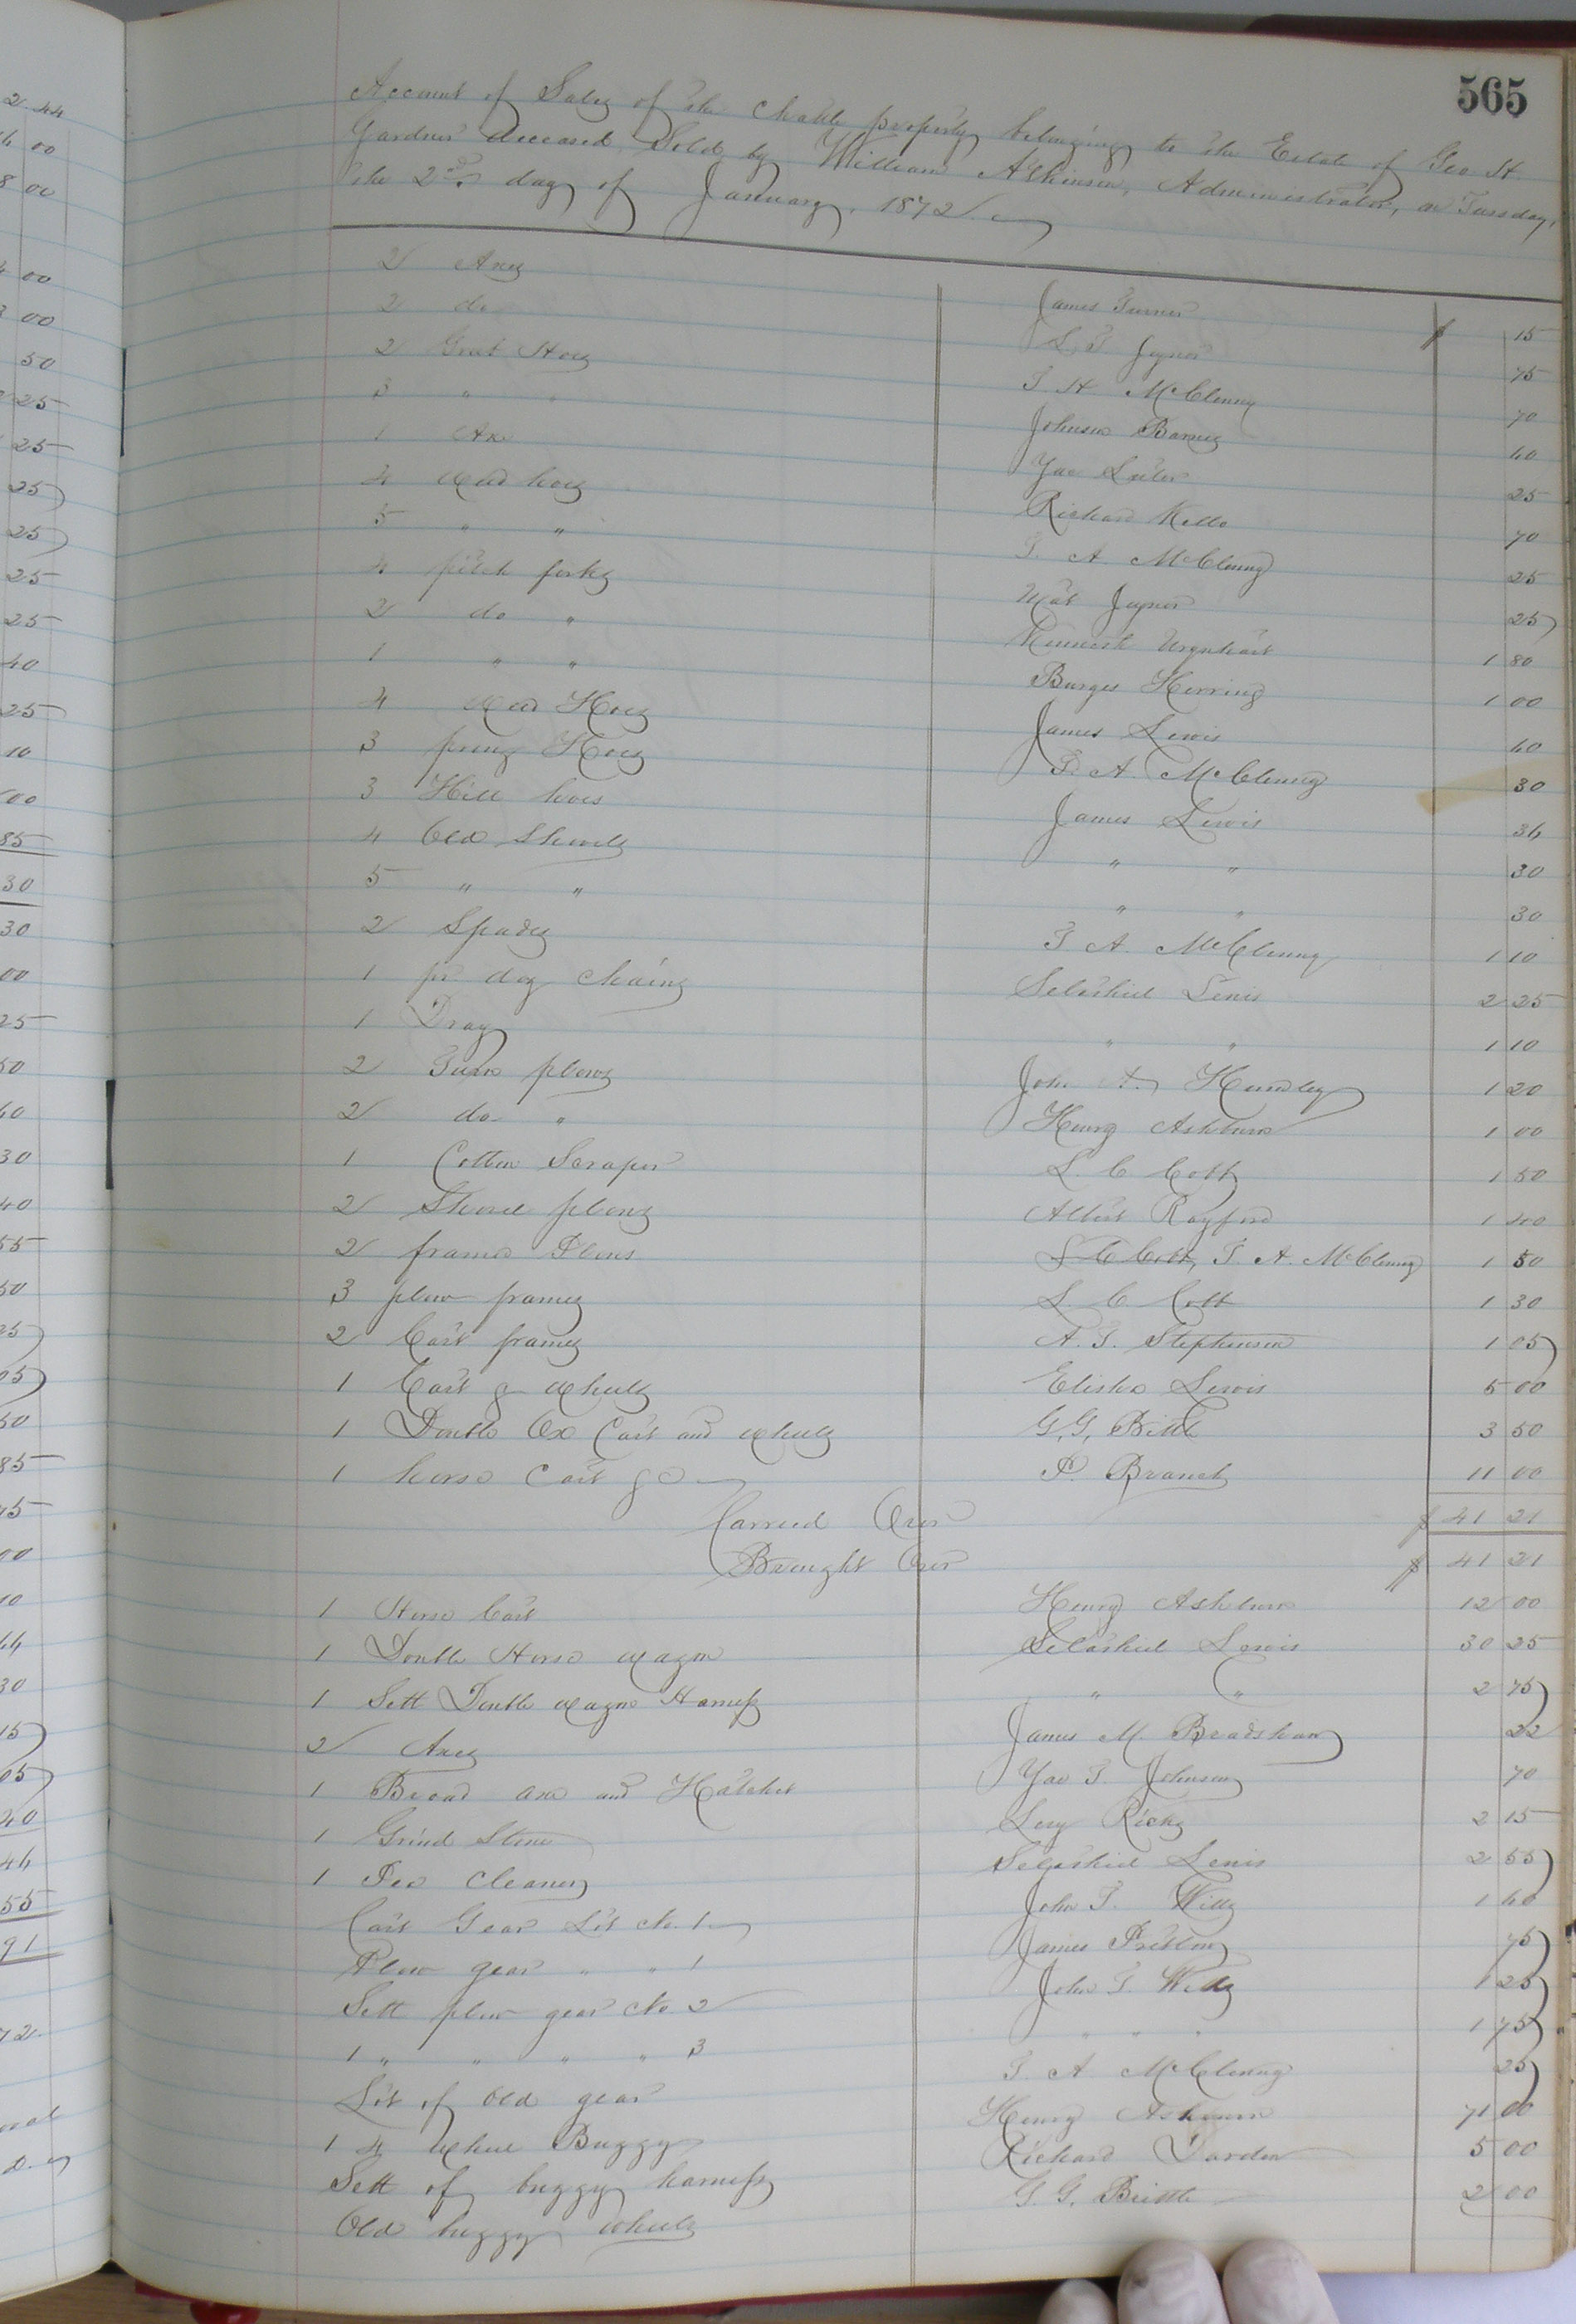 565
Account of Sales of the Chattle property belonging to the Estate of Geo. H.
Gardner deceased, Sold by William Atkinson, Administrator, on Tuesday,
the 2nd day of January, 1872.
2 Axes James Turner $ 15
2 do L. T. Joyner 75
2 Grub Hoes T H McClenny 70
3 " " Johnson Barnes 60
1 Axe Jas Luter 25
4 Weed hoes Richard Kello 70
5 " " T. A McClenny 25
4 pitch forks Mat Joyner 25
2 do " Kenneth Urquhart 1 80
1 " " Burges Herring 1 00
4 Weed Hoes James Lewis 60
3 prong Hoes T. A. McClenny 30
3 Hill hoes James Lewis 36
4 Old Shovels " " 30
5 " " " " 30
2 Spades T A. McClenny 1 10
1 pr dog chains Selathiel Lewis 2 25
1 Drag " " 1 10
2 Turn plows John A. Hundley 1 20
2 do " Henry Ashburn 1 00
1 Cotton Scraper L. C Cobb 1 50
2 Shovel plows Albert Rayford 1 40
2 frame Plows L C Cobb, T. A. McClenny 1 50
3 plow frames L. C Cobb 1 30
2 Cart frames A. T. Stephenson 1 05
1 Cart & Wheels Elisha Lewis 5 00
1 Double Ox Cart and Wheels G. G. Brittle 3 50
1 horse Cart &c P. Branch 11 00
Carried Over $ 41 21
Brought Over $ 41 21
1 Horse Cart Henry Ashburn 12 00
1 Double Horse Wagon Selathiel Lewis 30 25
1 Sett Double Wagon Harness " " 2 75
2 Axes James M. Bradshaw 22
1 Broad axe and Hatchet Jas T. Johnson 70
1 Grind Stone Levy Ricks 2 15
1 Pea Cleaner Selathiel Lewis 2 55
Cart Gear Lot No. 1 John T. Wills 1 60
Plow gear " " 1 James Pretlow 75
Sett plow gear No. 2 John T. Wills 1 25
1 " " " " 3 " " " 1 75
Lot of Old gear T. A McClenny 25
1 4 Wheel Buggy Henry Ashburn 71 00
Sett of buggy harness Richard Darden 5 00
Old buggy wheels G. G. Brittle 2 00